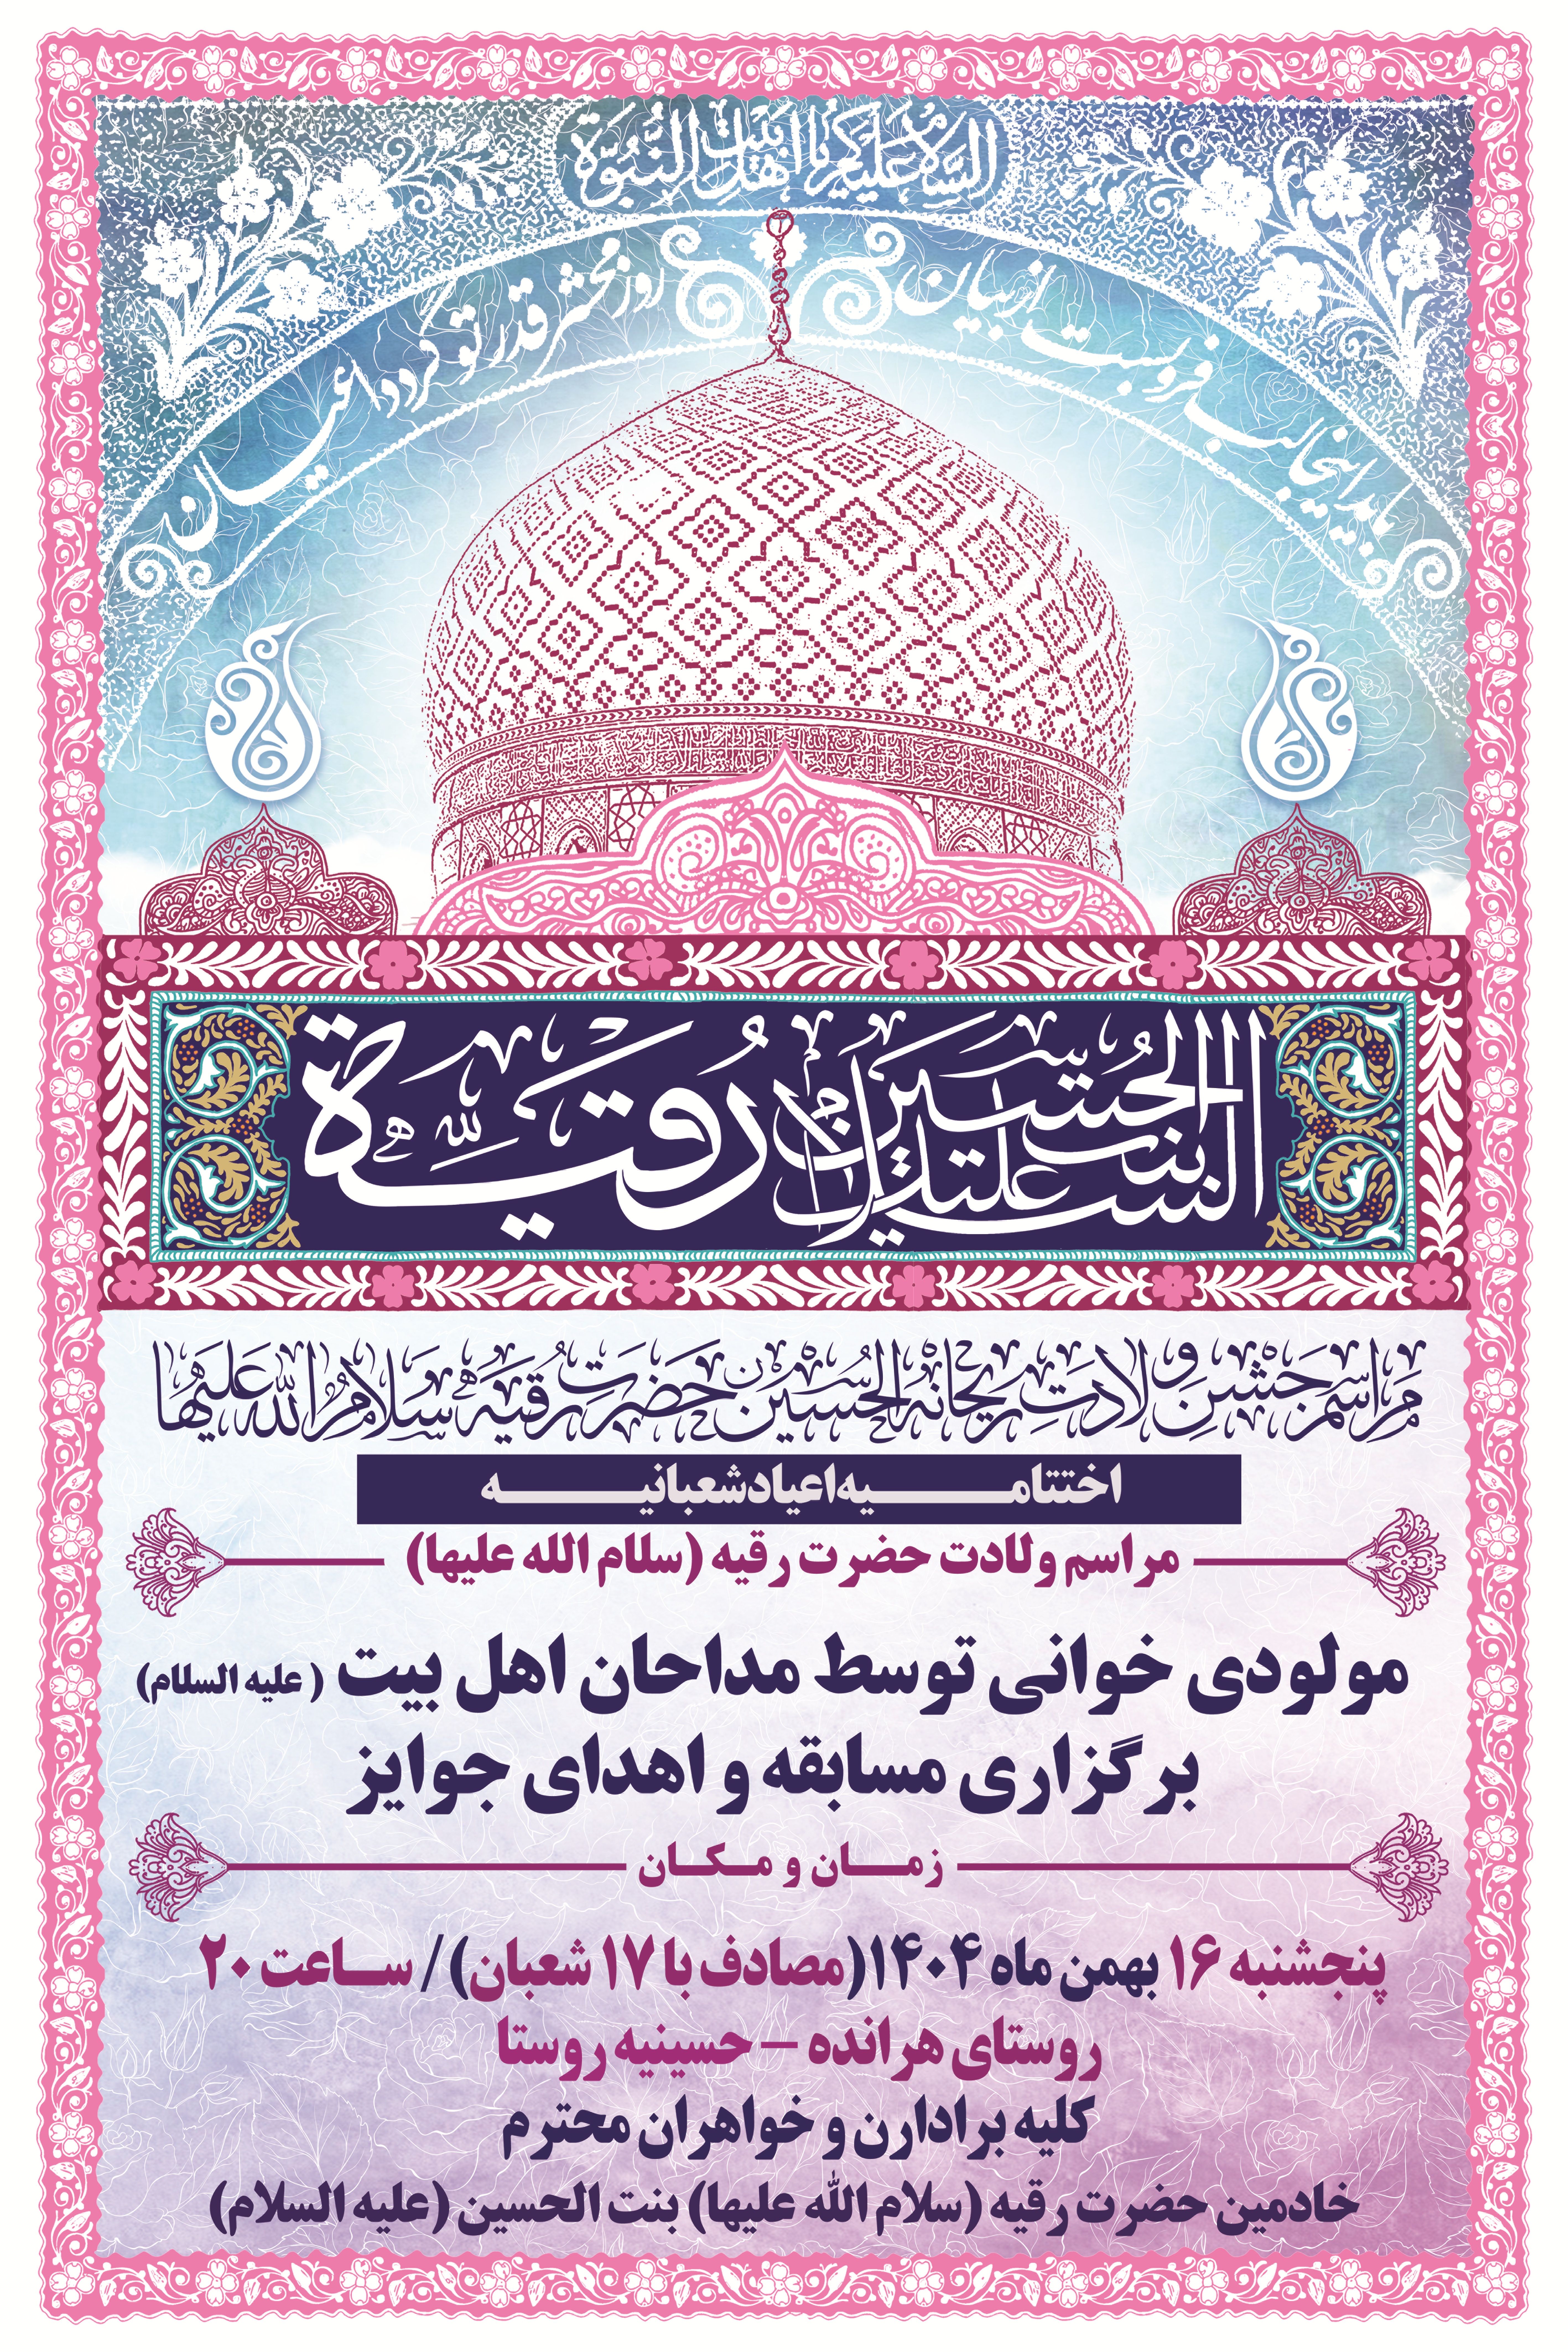 السلام علیکم یا اهل بیت النبوة
باید اینجا لب فروبست از بیان
روز محشر قدر تو گردد عیان
السلام علیک یا رقیة بنت الحسین
مراسم جشن ولادت ریحانه الحسین حضرت رقیه سلام الله علیها
اختتامیه اعیاد شعبانیه
مراسم ولادت حضرت رقیه (سلام الله علیها)
مولودی خوانی توسط مداحان اهل بیت ( علیه السلام)
برگزاری مسابقه و اهدای جوایز
زمان و مکان
پنجشنبه ۱۶ بهمن ماه ۱۴۰۴(مصادف با ۱۷ شعبان)/ ساعت ۲۰
روستای هرانده – حسینیه روستا
کلیه برادارن و خواهران محترم
خادمین حضرت رقیه (سلام الله علیها) بنت الحسین (علیه السلام)